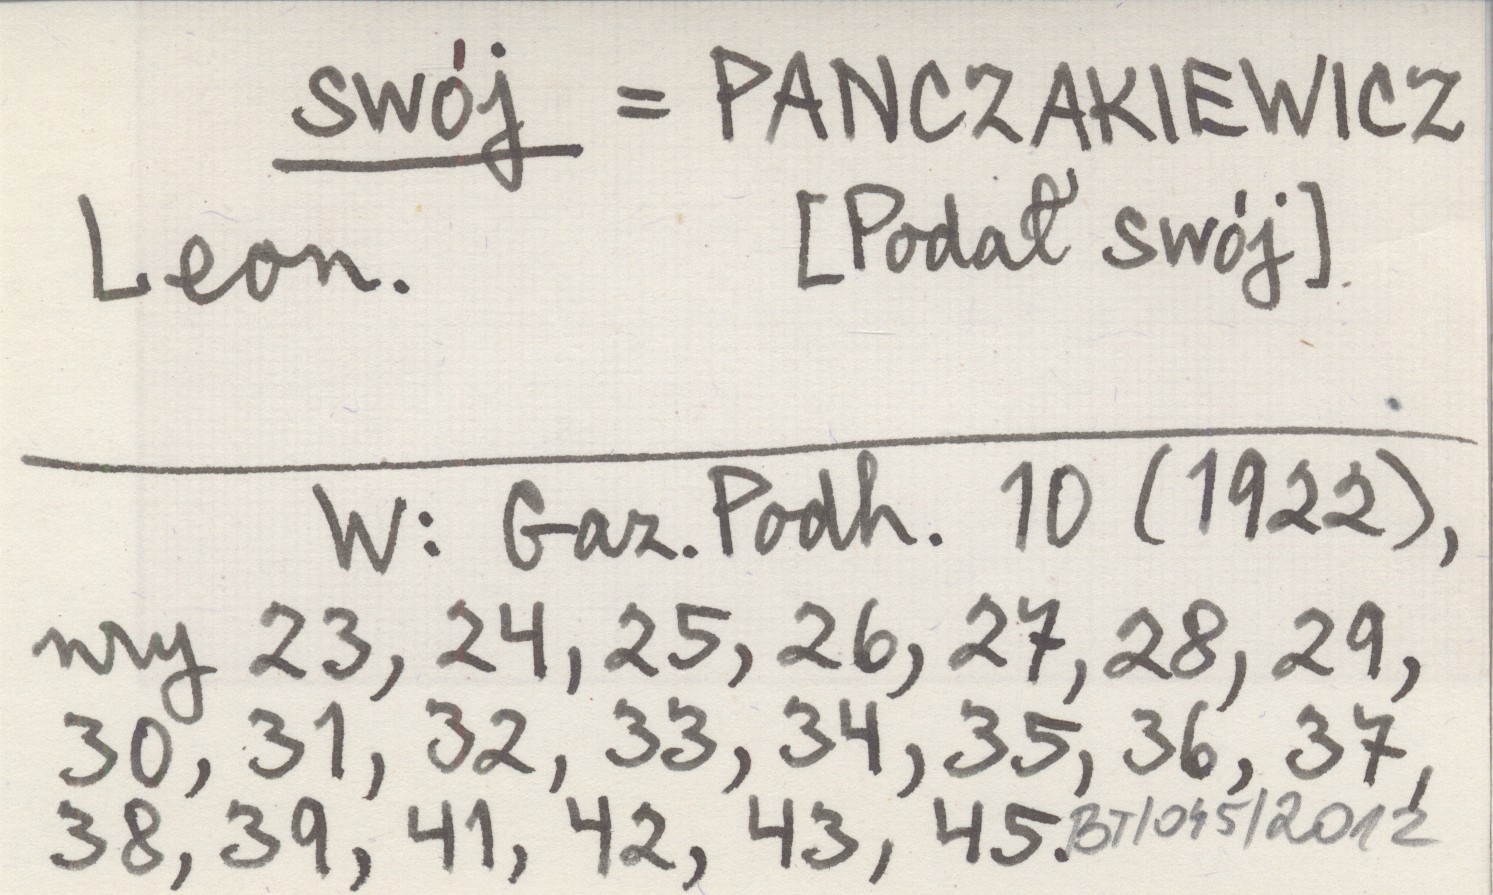 swój = PANCZAKIEWICZ
Leon. [Podał swój]
W: Gaz. Podh. 10 (1922),
nry 23, 24, 25, 26, 27, 28, 29,
30, 31, 32, 33, 34, 35, 36, 37,
38, 39, 41, 42, 43, 45. BT/045/2012